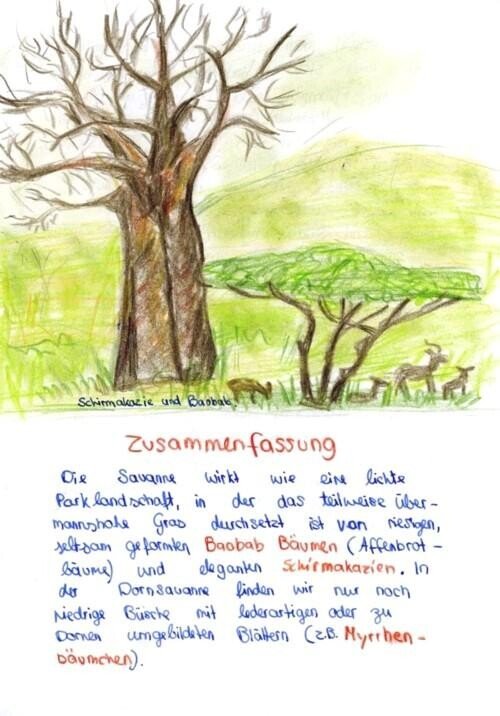 Schirmakazie und Baobab
Zusammenfassung
Die Savanne wirkt wie eine lichte
Parklandschaft, in der das teilweise über-
mannshohe Gras durchsetzt ist von riesigen,
seltsam geformten Baobab Bäumen (Affenbrot-
bäume) und eleganten Schirmakazien. In
der Dornsavanne finden wir nur noch
niedrige Büsche mit lederartigen oder zu
Dornen umgebildeten Blättern (z.B. Myrrhen-
bäumchen).